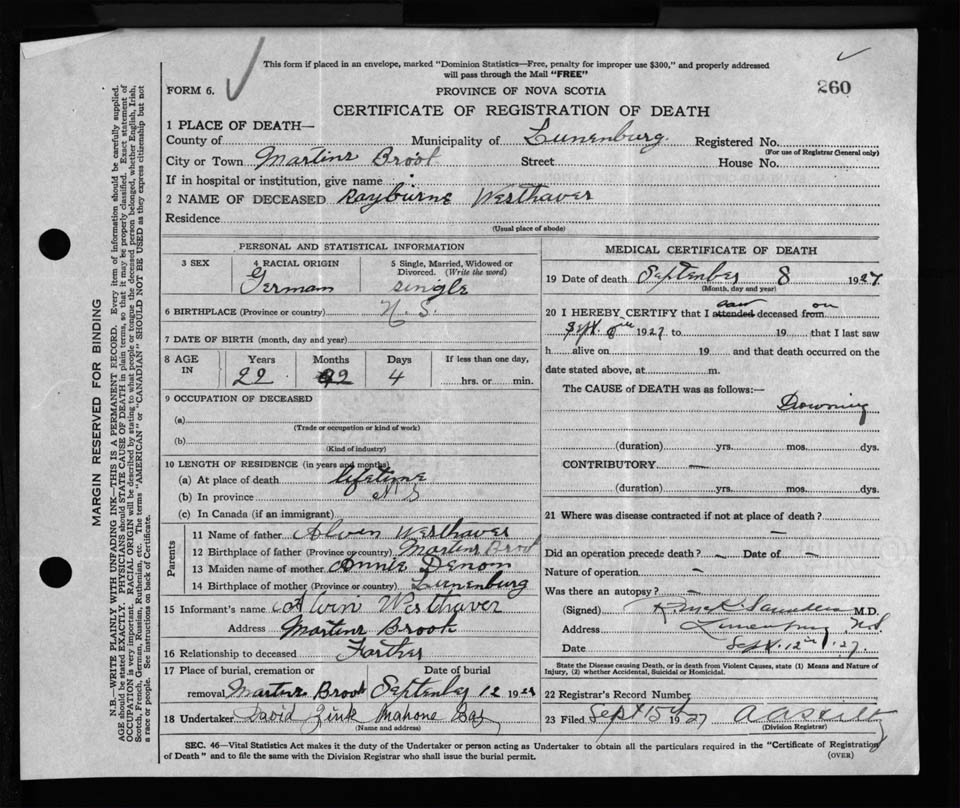 This form if placed in an envelope, marked "Dominion Statistics—Free, penalty for improper use $300," and properly addressed
will pass through the Mail "FREE"
FORM 6.
PROVINCE OF NOVA SCOTIA
260
CERTIFICATE OF REGISTRATION OF DEATH
1 PLACE OF DEATH—
County of Municipality of Lunenburg Registered No.
(For use of Registrar General only)
City or Town Martins Brook Street House No.
If in hospital or institution, give name
2 NAME OF DECEASED Rayburne Westhaver
Residence
(Usual place of abode)
PERSONAL AND STATISTICAL INFORMATION
3 SEX
4 RACIAL ORIGIN
German
5 Single, Married, Widowed or
Divorced. (Write the word)
single
6 BIRTHPLACE (Province or country) N.S.
7 DATE OF BIRTH (month, day and year)
8 AGE
IN
Years
22
Months
2
Days
4
If less than one day,
hrs. or min.
9 OCCUPATION OF DECEASED
(a)
(Trade or occupation or kind of work)
(b)
(Kind of industry)
10 LENGTH OF RESIDENCE (in years and months)
(a) At place of death lifetime
(b) In province N S
(c) In Canada (if an immigrant)
Parents
11 Name of father Alven Westhaver
12 Birthplace of father (Province or country) Martins Brook
13 Maiden name of mother Annie
14 Birthplace of mother (Province or country) Lunenburg
15 Informant's name Alvin Westhaver
Address Martins Brook
16 Relationship to deceased Farther
17 Place of burial, cremation or
removal Martins Brook
Date of burial
September 12 192
18 Undertaker David Zink Mahone Bay
(Name and address)
MEDICAL CERTIFICATE OF DEATH
19 Date of death September 8 1927
(Month, day and year)
20 I HEREBY CERTIFY that I attended saw deceased from on
Sept. 8th 1927 to 19 that I last saw
h alive on 19 and that death occurred on the
date stated above, at m.
The CAUSE OF DEATH was as follows:—
Drowning
(duration) yrs. mos. dys.
CONTRIBUTORY —
(duration) yrs. mos. dys.
21 Where was disease contracted if not at place of death?
—
Did an operation precede death? – Date of –
Nature of operation –
Was there an autopsy? –
(Signed) Saunders M.D.
Address Lunenburg N.S
Date Sept. 12th '27.
State the Disease causing Death, or in death from Violent Causes, state (1) Means and Nature of
Injury, (2) whether Accidental, Suicidal or Homicidal.
22 Registrar's Record Number
23 Filed Sept 15th 1927
(Division Registrar)
SEC. 46—Vital Statistics Act makes it the duty of the Undertaker or person acting as Undertaker to obtain all the particulars required in the "Certificate of Registration
of Death" and to file the same with the Division Registrar who shall issue the burial permit.
(OVER)
MARGIN RESERVED FOR BINDING
N.B.—WRITE PLAINLY WITH UNFADING INK—THIS IS A PERMANENT RECORD. Every item of information should be carefully supplied.
AGE should be stated EXACTLY. PHYSICIANS should STATE CAUSE OF DEATH in plain terms, so that it may be properly classified. Exact statement of
OCCUPATION is very important. RACIAL ORIGIN will be described by stating to what people or tongue the deceased person belonged, whether English, Irish,
Scotch, French, German, Russian, Ruthenian, etc. The terms "AMERICAN" or "CANADIAN" SHOULD NOT BE USED as they express citizenship but not
a race or people. See instructions on back of Certificate.